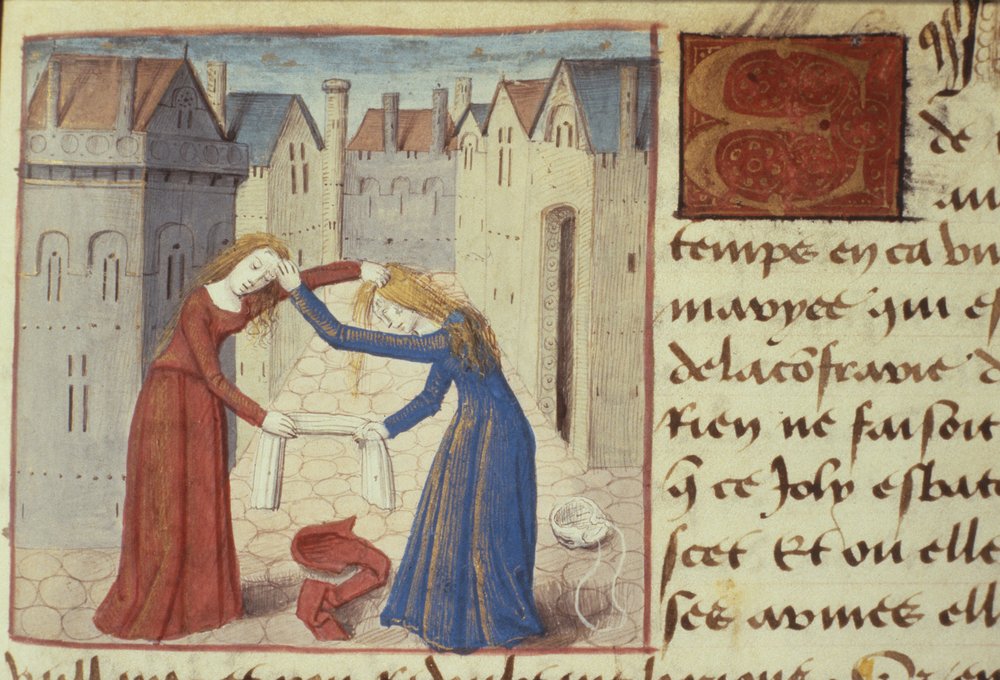 E
de
au
temps en ca vn
maryee qui es
de la cõfrarie d
Rien ne faisoit
q̃ ce Joly esbat
scet Et ou elle
ses armes ell